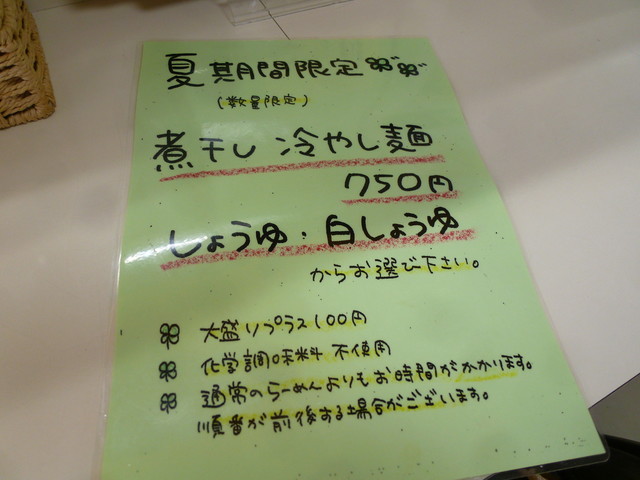 夏期間限定
(数量限定)
煮干し 冷やし麺
750円
しょうゆ・白しょうゆ
からお選び下さい。
大盛りプラス100円
化学調味料 不使用
通常のらーめんよりもお時間がかかります。
順番が前後する場合がございます。